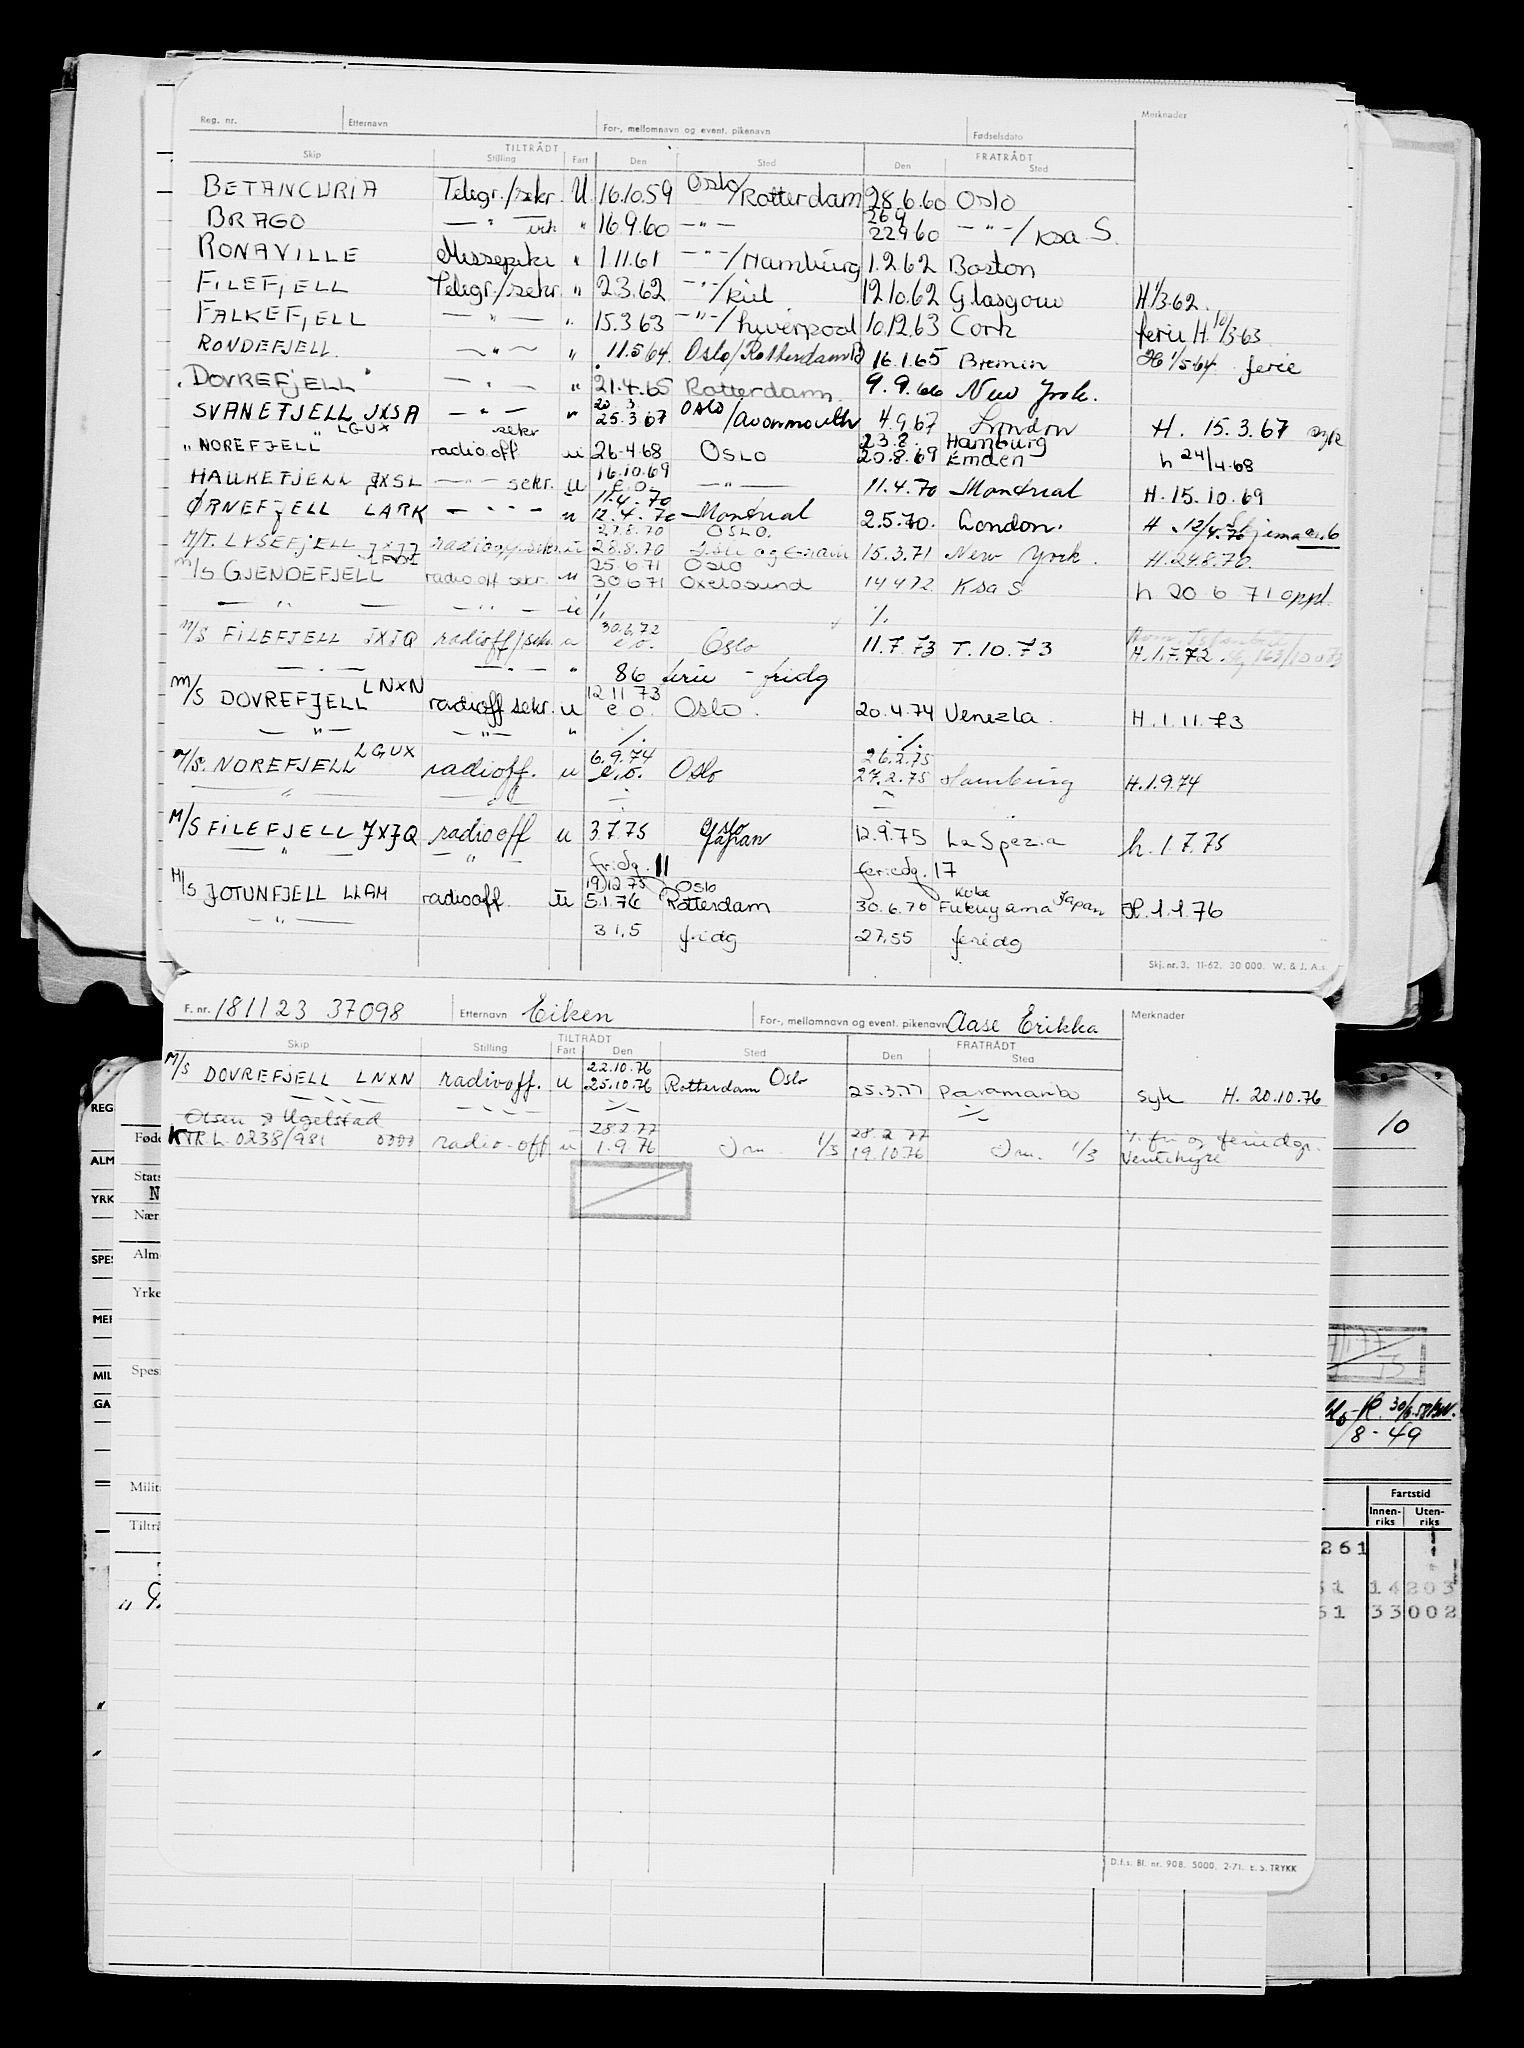 Reg. nr. Etternavn For-, mellomnavn og event. pikenavn Fødselsdato Merknader
TILTRÅDT FRATRÅDT
Skip Stilling Fart Den Sted Den Sted
BETANCURIA Telegr./sekr. U 16.10.59 Oslo/Rotterdam 28.6.60 Oslo
26.9
BRAGO — " — " 16.9.60 — " — 22.9.60 — " — / Ksa S.
RONAVILLE Messepike " 1.11.61 — " — /Hamburg 1.2.62 Boston
FILEFJELL Telegr./sekr. " 2.3.62 — " — /Kiel 12.10.62 Glasgow H 1/3.62.
FALKEFJELL — " — " 15.3.63 — " — /Liverpool 10.12.63 Cork ferie H. 10/3.63
RONDEFJELL. — " — " 11.5.64 Oslo/Rotterdam 16.1.65 Bremen H 1/5.64 ferie
"DOVREFJELL" — " — " 21.4.65 Rotterdam. 9.9.66 New York.
20 3
SVANEFJELL JXSA — " — " 25.3.67 Oslo/Avonmouth 4.9.67 London H. 15.3.67
LGUX sekr 23.8. Hamburg
"NOREFJELL" radio.off u 26.4.68 OSLO 20.8.69 Emden h 24/4.68
16.10.69
HAUKEFJELL JXSL — " — sekr. u e.o. — " — 11.4.70 Montreal H. 15.10.69
11.4.70
ØRNEFJELL LARK — " — u 12.4.70 Montreal 2.5.70. London. H. 12/4.70 Skjema
27.8.70 OSLO.
M/T. LYSEFJELL radiooff.sekr. u 28.8.70 15.3.71 New York. H. 24.8.70.
25 6 71 Oslo
M/S GJENDEFJELL radio off sekr. u 30 6 71 Oxelosund 14 4 72 Ksa S h 20 6 71 oppl.
— " — — " — u % %
30.6.72
M/S FILEFJELL JXJQ radioff/sekr. u e.o. Oslo 11.7.73 T.10.73 H.1.7.72.
— " — — " — " 86 ferie - fridg
LNXN 12 11 73
M/S DOVREFJELL radiooff sekr. u e o. Oslo. 20.4.74 Venezla. H.1.11.73
— " — — " — " %
LGUX 6.9.74 26.2.75
M/S. NOREFJELL radiooff. u e.o. Oslo 27.2.75 Hamburg H.1.9.74
— " — — " —
Oslo
M/S FILEFJELL JXJQ radiooff u 3.7.75 Japan 12.9.75 La Spezia h. 1 7.75
— " — — " — fridg. 11 feriedg. 17
19.12.75 Oslo Kobe
M/S JOTUNFJELL LLAM radiooff. u 5.1.76 Rotterdam 30.6.76 Fukuyama Japan H. 1.1.76
— " —
31,5 fridg 27,55 feriedg
Skj. nr. 3. 11-62. 30 000. W. & J. A.s.
F. nr. 181123 37098 Etternavn Eiken For-, mellomnavn og event. pikenavn Aase Erikka Merknader
TILTRÅDT FRATRÅDT
Skip Stilling Fart Den Sted Den Sted
22.10.76
M/S DOVREFJELL LNXN radiooff. u 25.10.76 Rotterdam Oslo 25.3.77 Paramaribo syk H. 20.10.76
— " — — " — % %
Olsen & Ugelstad 28.2.77 28.2.77 % fri og feriedgr.
KTR.L. 0238/981 0000 radio-off u 1.9.76 1/3 19.10.76 1/3 Ventehyre
D.f.s. Bl. nr. 908. 5000. 2-71. E. S. TRYKK
REG
Føde
ALM
Stats
N
YRK
Nær
SPES
Alm
Yrke
MER
Spesi
MIL
GA
Milit
Tiltr
10
30/6.58
8-49
Fartstid
Innen-riks Uten-riks
261
51 14203
61 33002